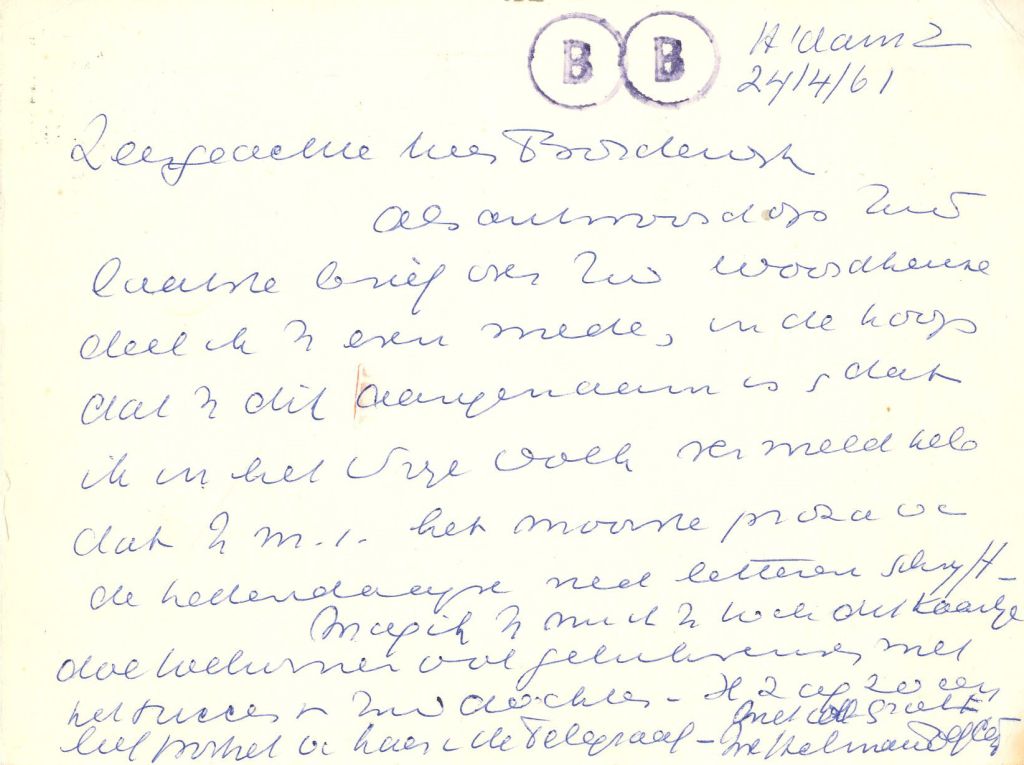 B B
A'dam Z
24/4/61
Zeergeachte heer Bordewijk
Als antwoord op Uw
laatste brief over Uw woordkeuze
deel ik U even mede, in de hoop
dat U dit aangenaam is, dat
ik in het Vrije Volk vermeld heb
dat U m.i. het mooiste proza
de hedendaagse ned letteren schrijft -
Mag ik U dit kaartje
gelukwensen met
het succes Uw dochter - Ik zag zo een
lief portret haar de Telegraaf -
met groet